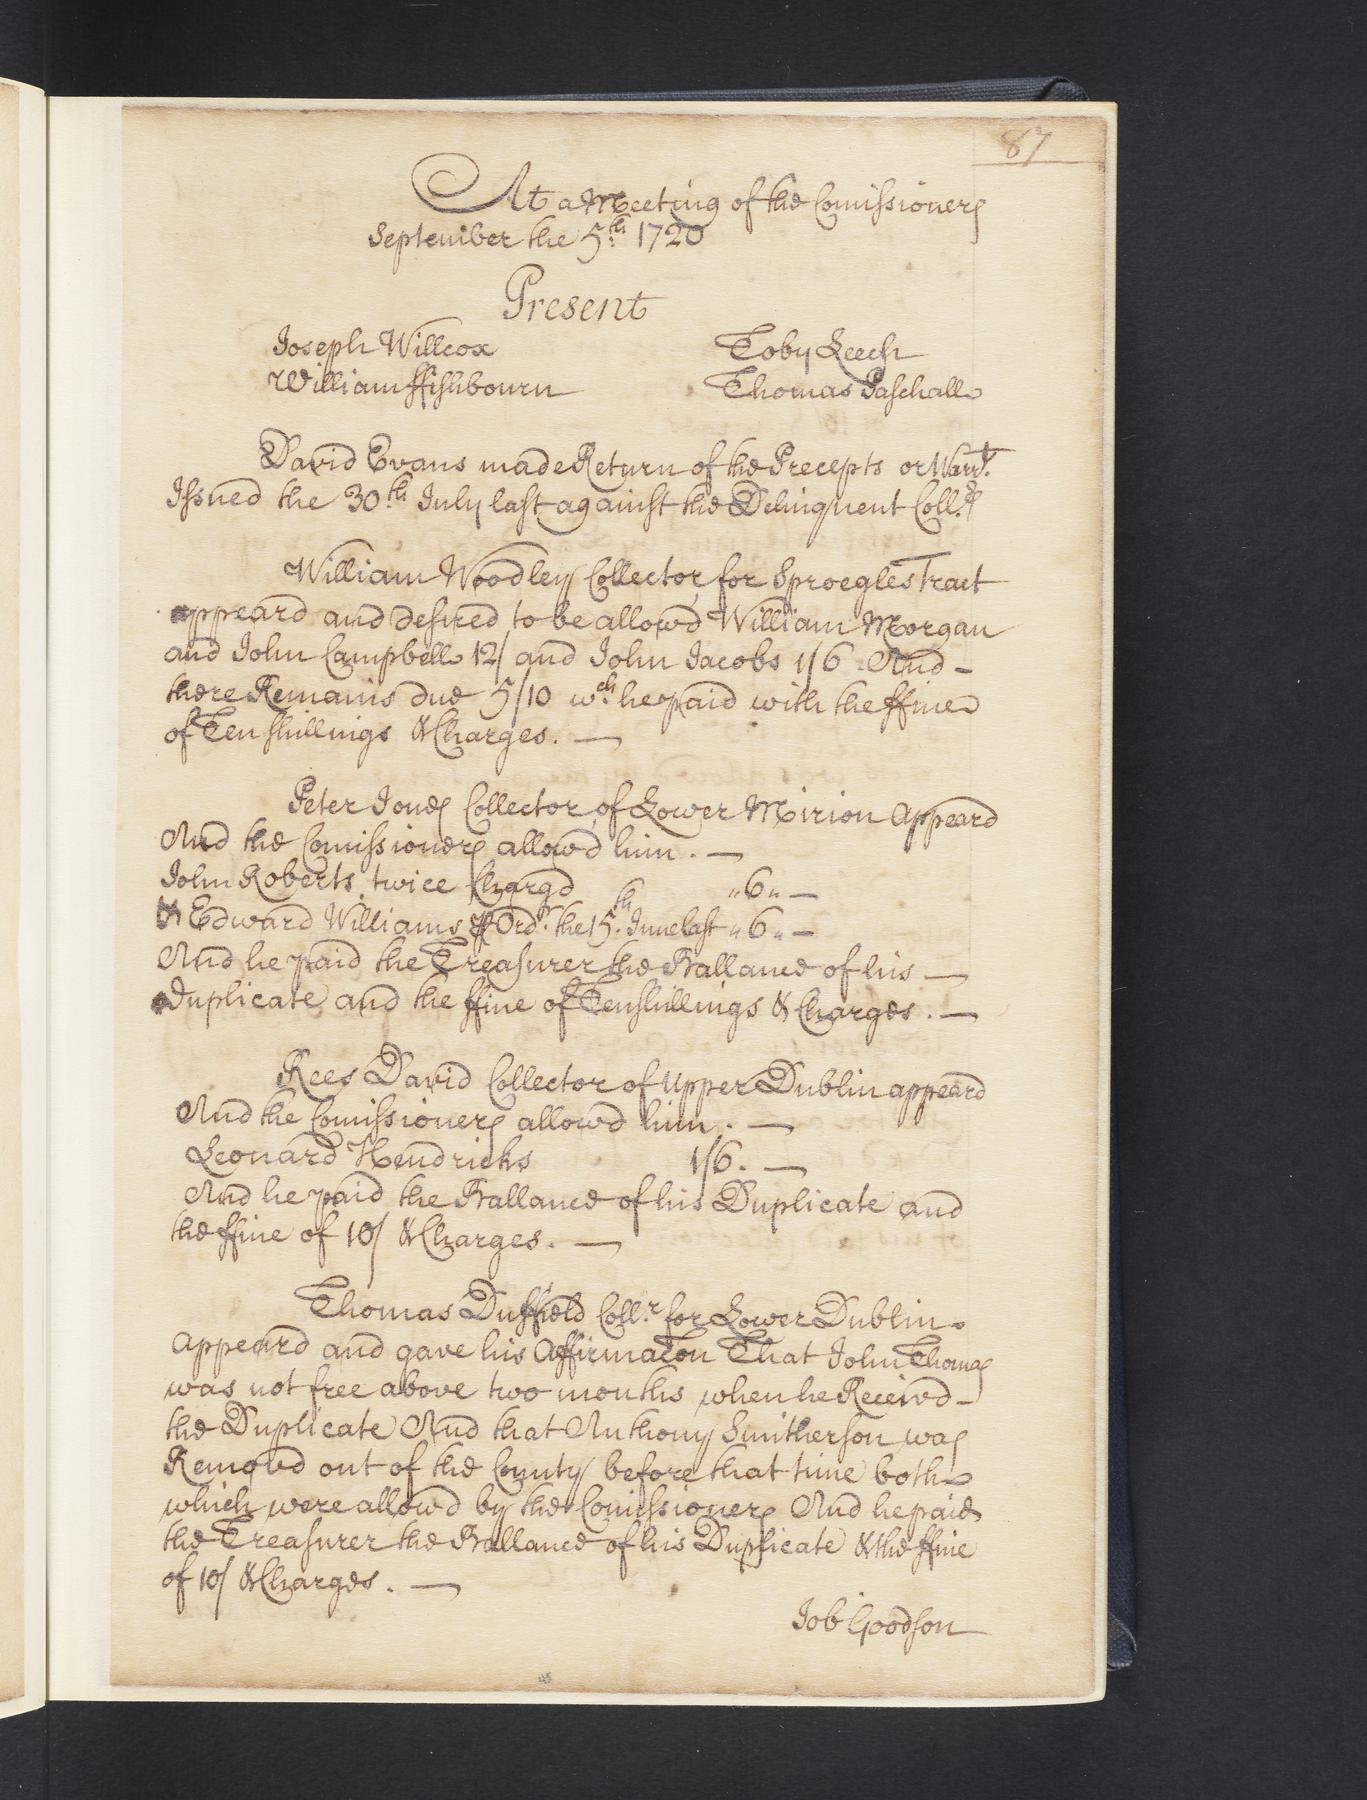 87
At a Meeting of the Comissioners
September the 5th 1720
Present
Joseph Willcox Toby Leech
William ffishbourn Thomas Paschall
David Evans made Return of the Precepts or Warrt.
Issued the 30th July last against the Delinquent Coll.rs
William Woodley Collector for Sproegles Tract
appeard and desired to be allowd William Morgan
and John Campbell 12/ and John Jacobs 1/6 And
there Remains due 5/10 wch. he paid with the ffine
of Ten shillings & Charges.
Peter Jones Collector of Lower Mirion appeard
And the Comissioners allowd him.
John Roberts twice Chargd "6"
& Edward Williams P Ordr. the 15th. June last "6"
And he paid the Treasurer the Ballance of his
Duplicate and the ffine of Ten shillings & Charges.
Rees David Collector of Upper Dublin appeard
And the Comissioners allowd him.
Leonard Hendricks 1/6.
And he paid the Ballance of his Duplicate and
the ffine of 10/ & Charges.
Thomas Duffield Coll.r for Lower Dublin
appeard and gave his Affirmacon That John Thomas
was not free above two months when he Receivd
the Duplicate And that Anthony Smitherson was
Removd out of the County before that time both
which were allowd by the Comissioners And he paid
the Treasurer the Ballance of his Duplicate & the ffine
of 10/ & Charges.
Job Goodson